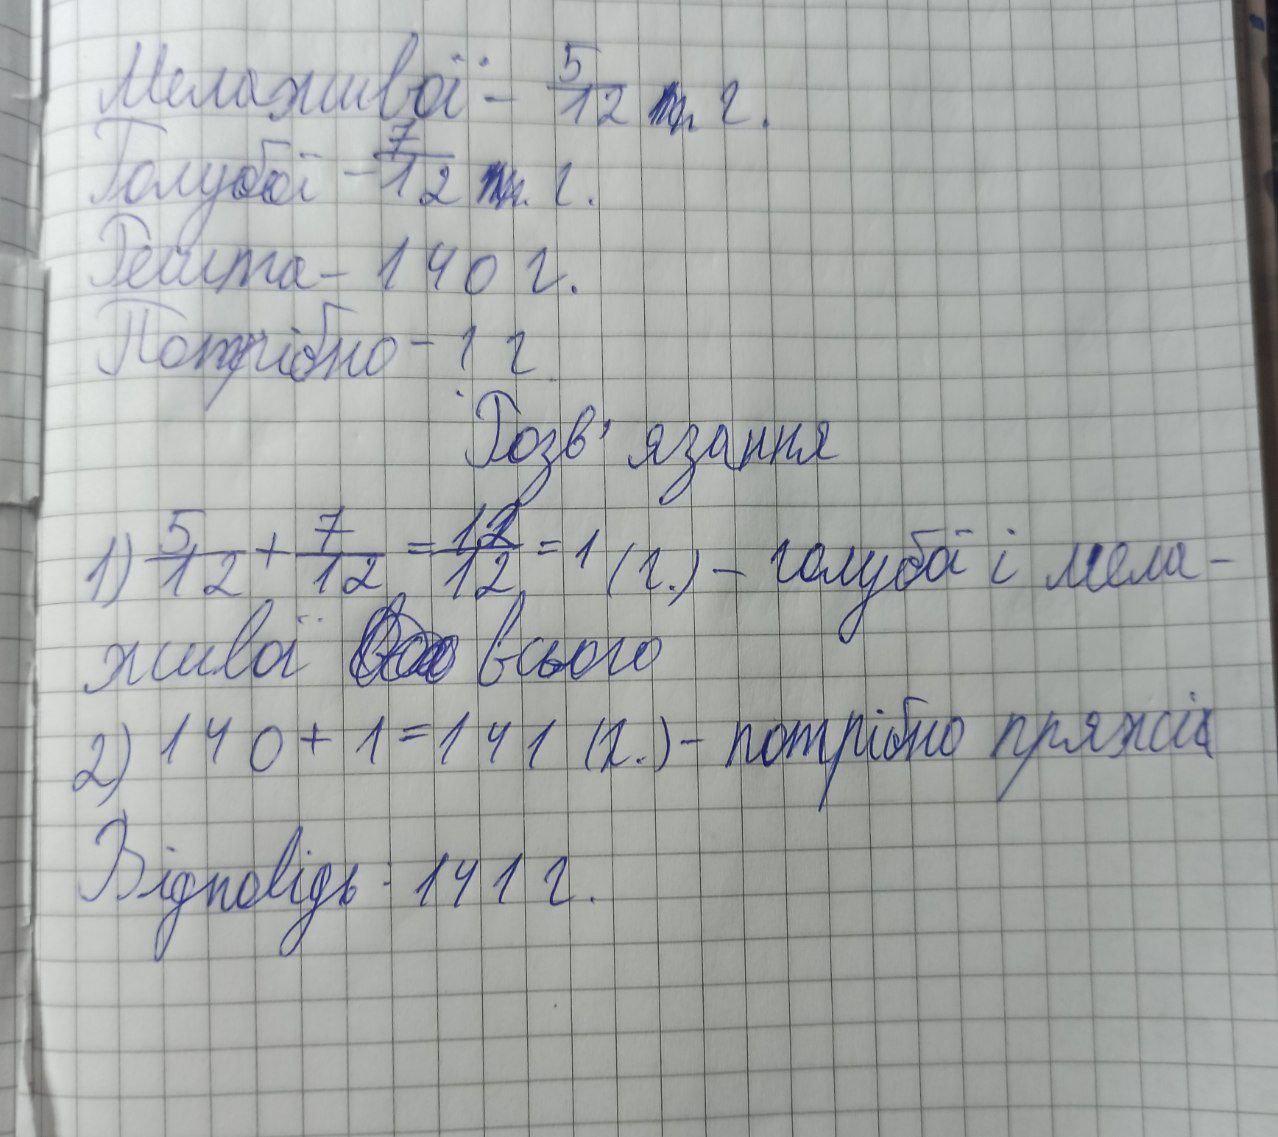 Меланживої - 5/12 г.
Голубої - 7/12 г.
Решта - 140 г.
Потрібно - 1 г
Розв'язання
1) 5/12 + 7/12 = 12/12 = 1 (г.) - голубої і мела-
живої всього
2) 140 + 1 = 141 (г.) - потрібно пряжі
Відповідь: 141 г.